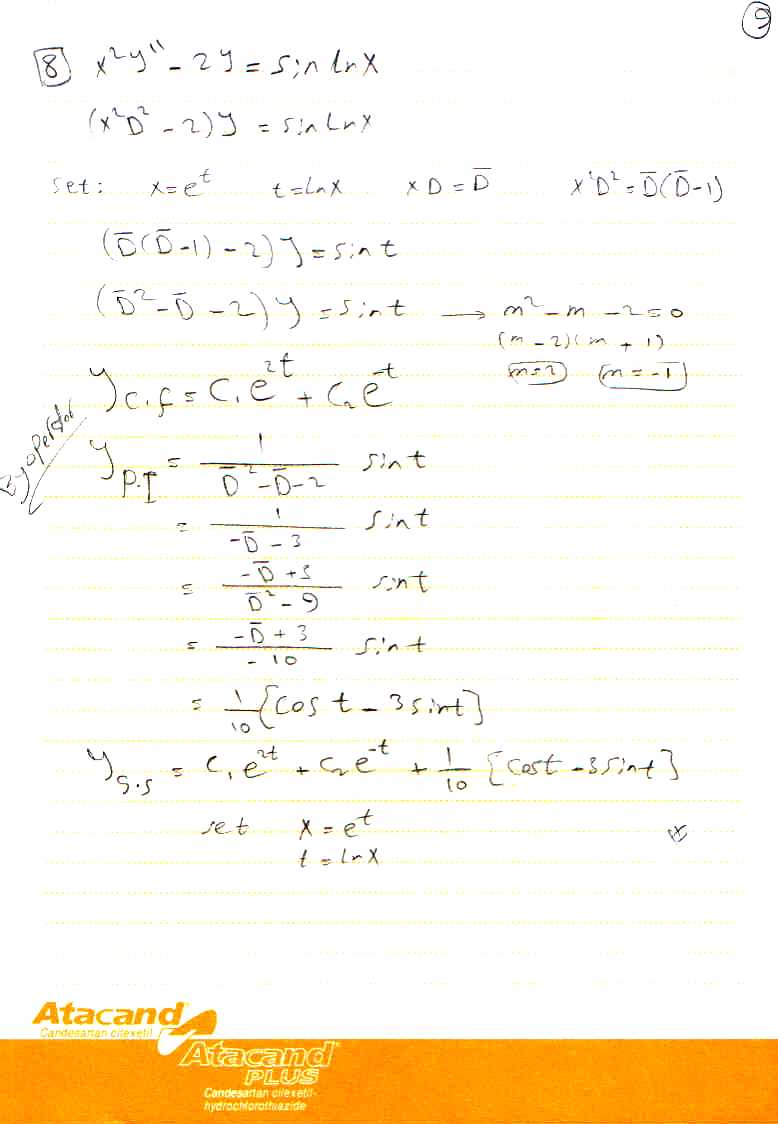 9
8 x²y'' - 2y = sin ln x
(x²D² - 2)y = sin Ln x
set: x = e^t t = Ln x x D = D̄ x²D² = D̄(D̄-1)
(D̄(D̄-1) - 2)y = sin t
(D̄² - D̄ - 2)y = sin t → m² - m - 2 = 0
(m - 2)(m + 1)
y_C.F = C₁e^2t + C₂e^-t m=2 m=-1
By operator
y_P.I = 1/(D̄² - D̄ - 2) sin t
= 1/(-D̄ - 3) sin t
= (-D̄ + 3)/(D̄² - 9) sin t
= (-D̄ + 3)/(-10) sin t
= 1/10 [cos t - 3 sin t]
y_S.S = C₁e^2t + C₂e^-t + 1/10 [cos t - 3 sin t]
set x = e^t
t = Ln x
Atacand
Candesartan cilexetil
Atacand
PLUS
Candesartan cilexetil-
hydrochlorothiazide